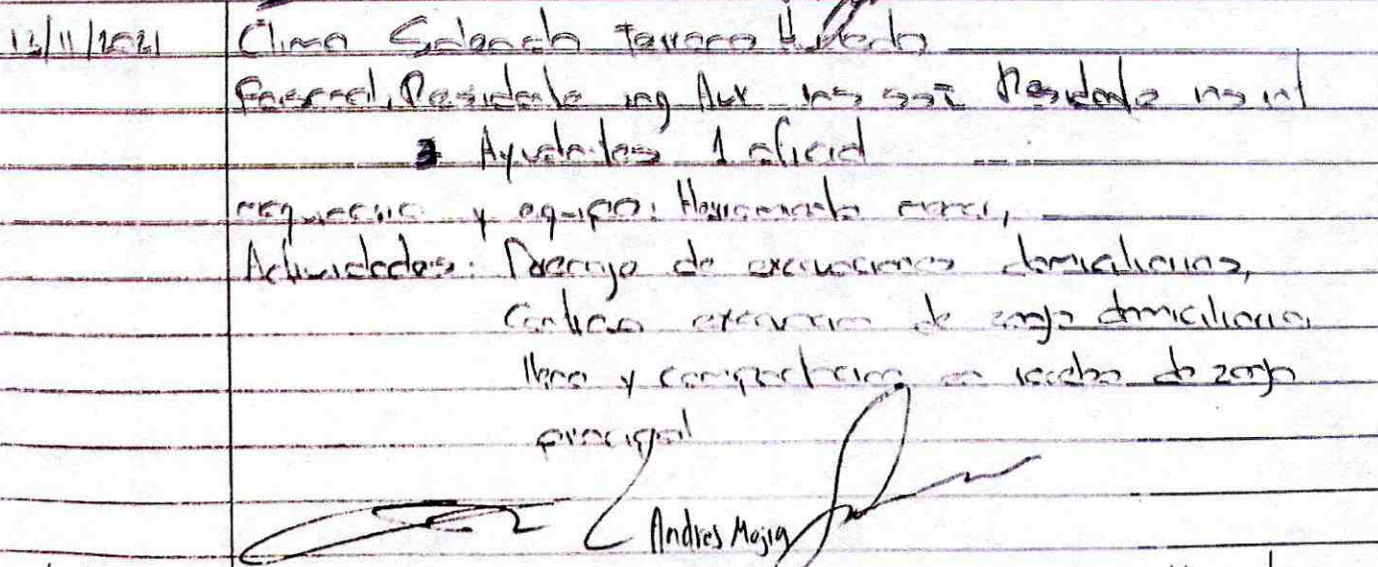 /11/2021 Clima Soleado Terreno Humedo
Personal, Residente ing Aux ing sst Residente ing int
3 Ayudantes 1 oficial
maquinaria y equipo: Herramienta menor,
Actividades: de excavaciones domiciliarias,
Continua excavacion de zanja domiciliaria
lleno y compactacion en recebo de zanja
principal
Andres Mojia